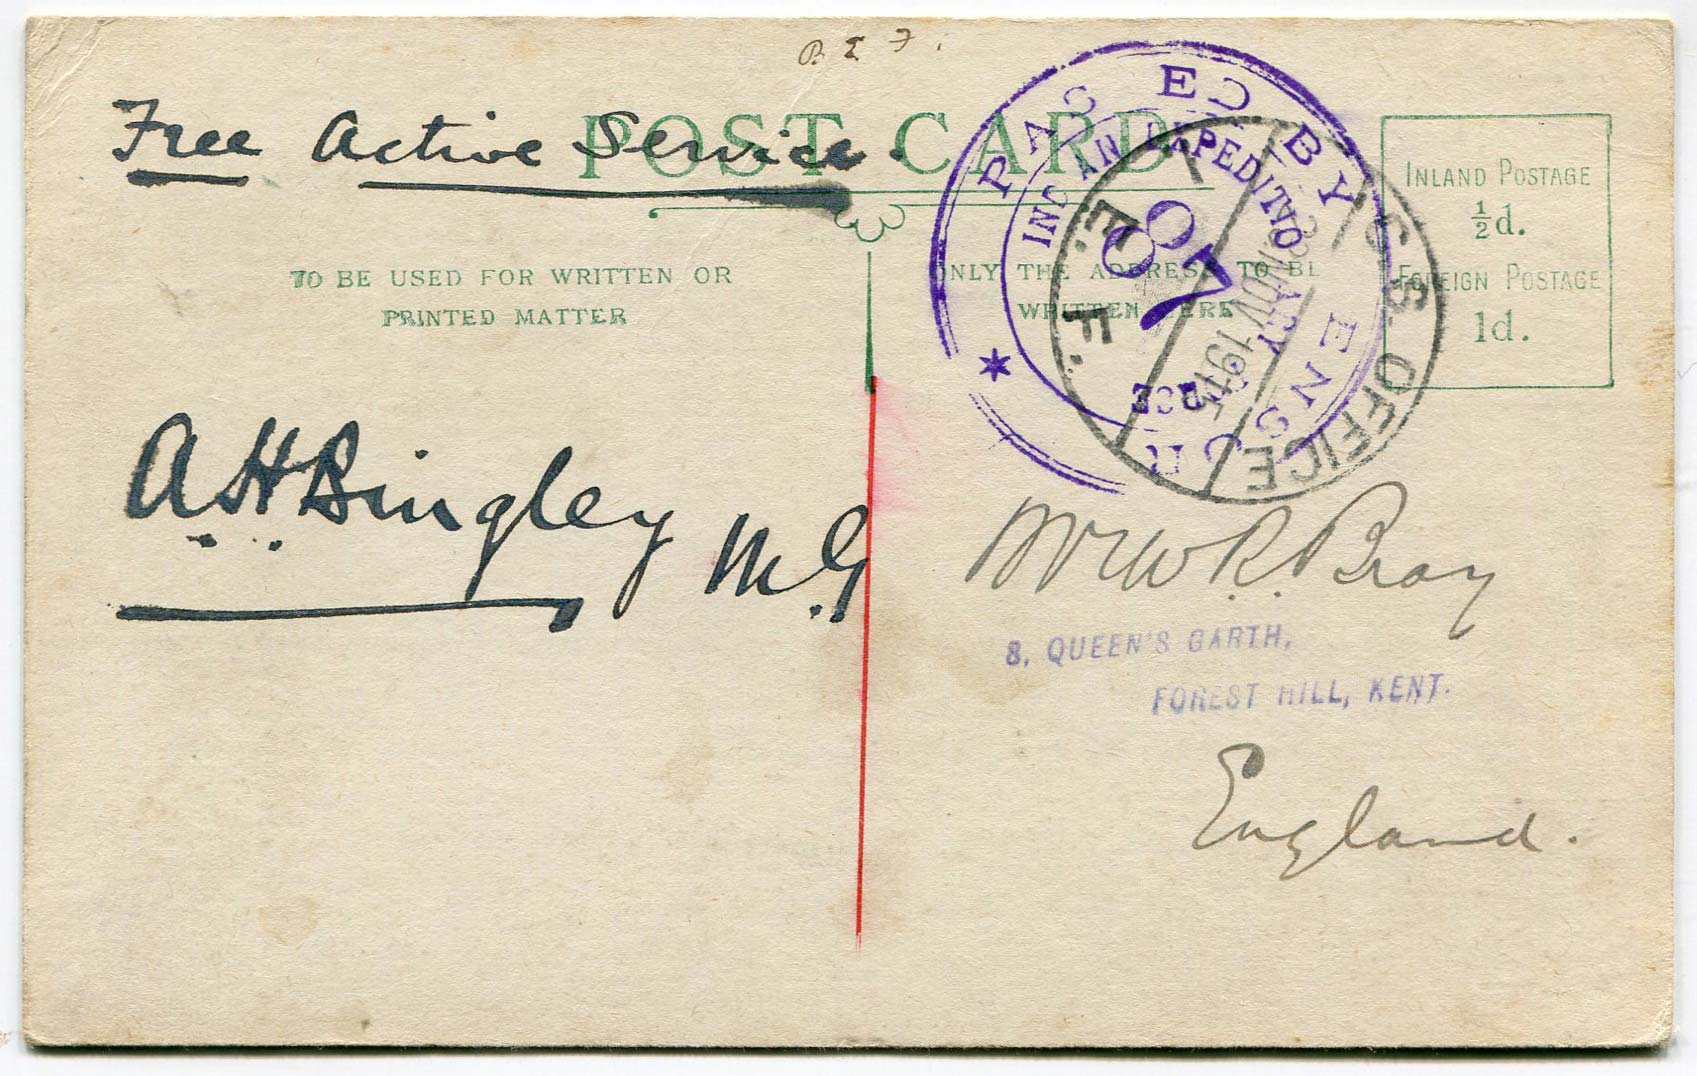 B E F.
Free Active Service.
POST CARD
TO BE USED FOR WRITTEN OR
PRINTED MATTER
ONLY THE ADDRESS TO BE
WRITTEN HERE
INLAND POSTAGE
½d.
FOREIGN POSTAGE
1d.
PASSED BY CENSOR
INDIAN EXPEDITIONARY
FORCE
I.E.F.
NOV 1915
S. OFFICE
A.H. Bingley M.G
Mr W R. Bray
8, QUEEN'S GARTH,
FOREST HILL, KENT.
England.